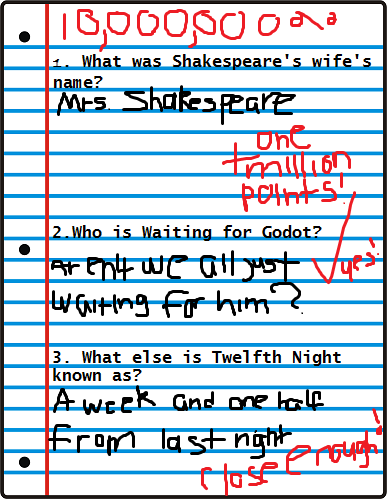 10,000,000%
1. What was Shakespeare's wife's
name?
Mrs. Shakespeare
one
tmillion
points!
2.Who is Waiting for Godot?
Arent we all just
yes!
waiting for him?
3. What else is Twelfth Night
known as?
A week and one half
from last night
close enough!